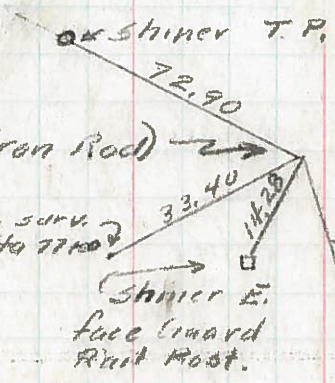 Shiner T.P.
72.90
Iron Rod)
33.40
14.28
surv.
Shiner E.
face Guard
Rail Post.